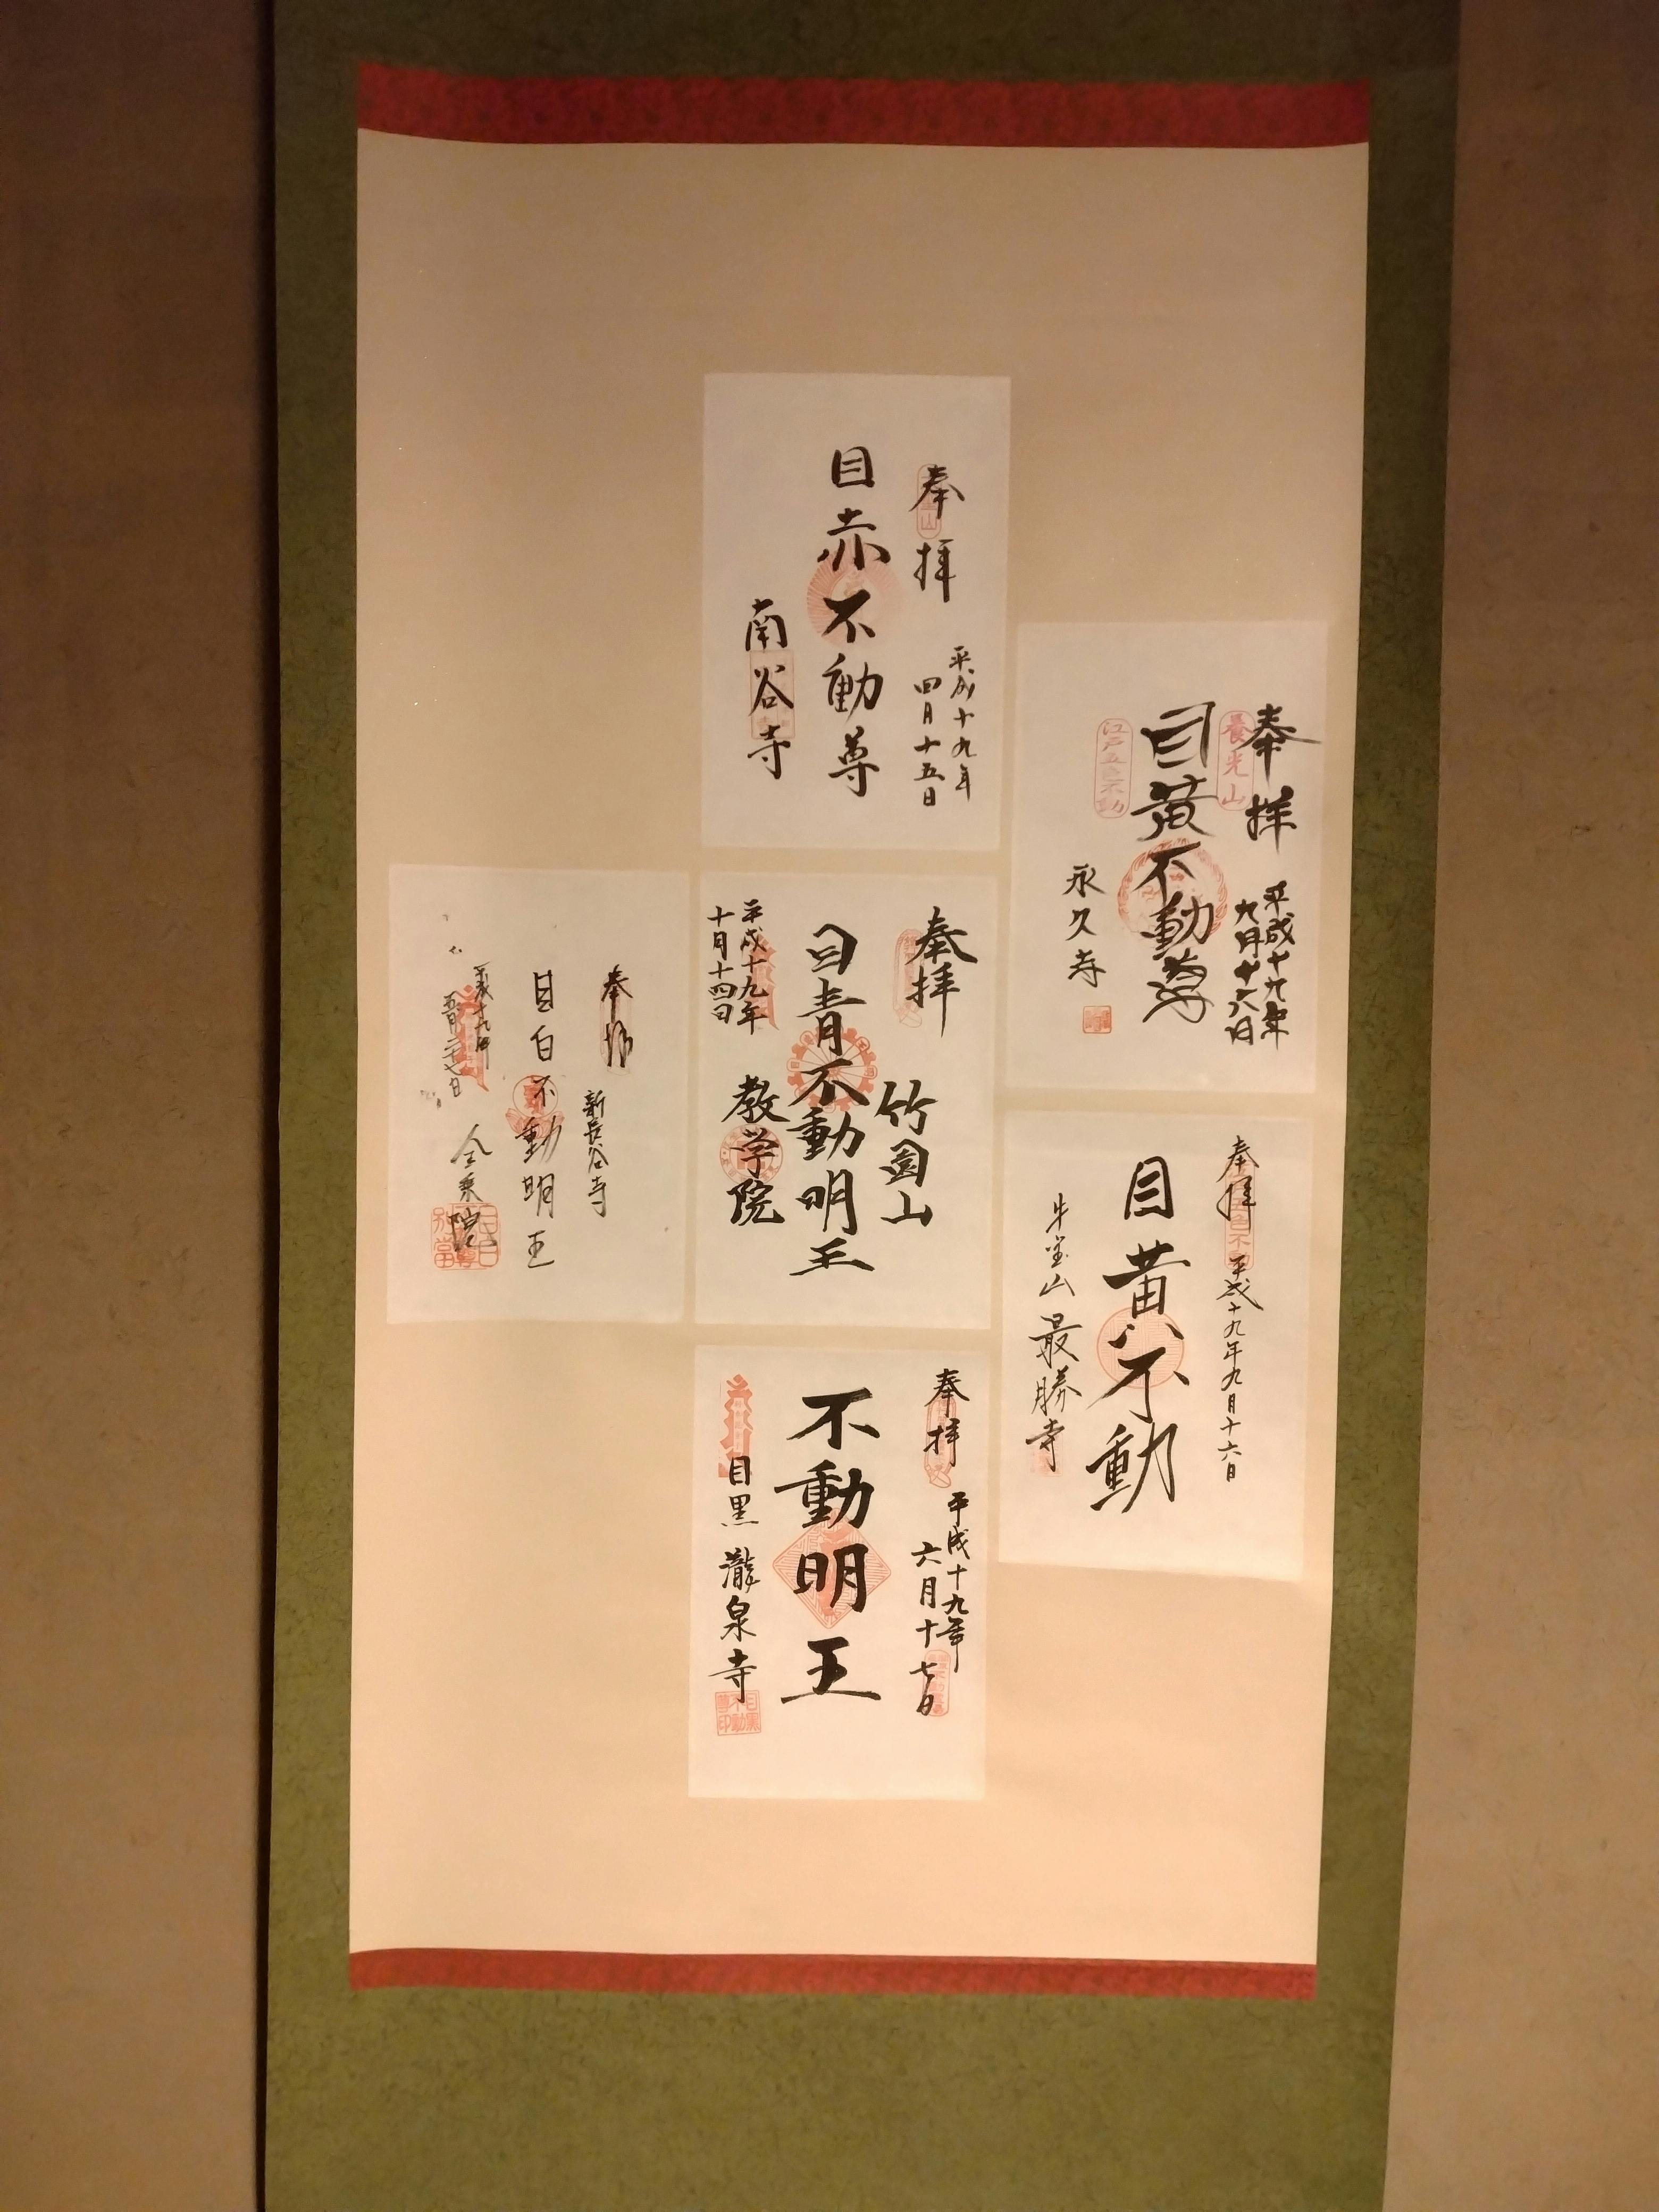 奉拝
平成十九年
四月十五日
目赤不動尊
南谷寺
奉拝
養光山
平成十九年
九月十六日
目黄不動尊
江戸五色不動
永久寺
奉拝
竹園山
目青不動明王
平成十九年
十月十四日
教学院
奉拝
新長谷寺
目白不動明王
平成十九年
五月二十七日
金乗院
奉拝
平成十九年九月十六日
目黄不動
牛宝山
最勝寺
奉拝
平成十九年
六月十七日
不動明王
目黒 瀧泉寺